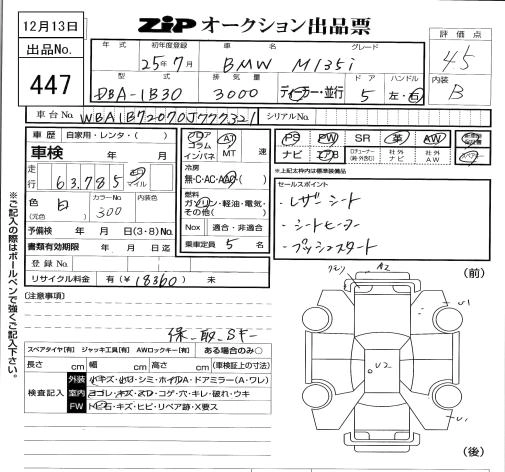 12月13日
ZIP オークション出品票
出品No.
447
年式 初年度登録 車名 グレード
25年7月 BMW M135i
評価点
4.5
内装
B
型式 排気量 ドア ハンドル
DBA-1B30 3000 ディーラー・並行 5 左・右
車台No. WBA1B72070J777321 シリアルNo.
車歴 自家用・レンタ・( )
車検 年 月
走行 63,785 km マイル
色 白 (元色) カラーNo. 300 内装色
予備検 年 月 日(3・8)No.
書類有効期限 年 月 日迄
登録No.
リサイクル料金 有(¥18360) 未
フロア コラム インパネ AT MT 速
冷房
無・C・AC・AAC・( )
燃料
ガソリン・軽油・電気・その他( )
Nox 適合・非適合
乗車定員 5 名
PS PW SR 革 AW
ナビ エアB 社外ナビ 社外AW
※上記太枠内は標準装備品
セールスポイント
・レザーシート
・シートヒーター
・プッシュスタート
※ご記入の際はボールペンで強くご記入下さい。
[注意事項]
保_取_Sキー
スペアタイヤ[有] ジャッキ工具[有] AWロックキー[有] ある場合のみ○
長さ cm 幅 cm 高さ cm (車検証上の寸法)
検査記入
外装 小キズ・小凹・シミ・ホイルA・ドアミラー(A・ワレ)
室内 ヨゴレ・キズ・スレ・コゲ・穴・キレ・破れ・ウキ
FW トビ石・キズ・ヒビ・リペア跡・X要ス
A2
(前)
U1
U2
U1
(後)